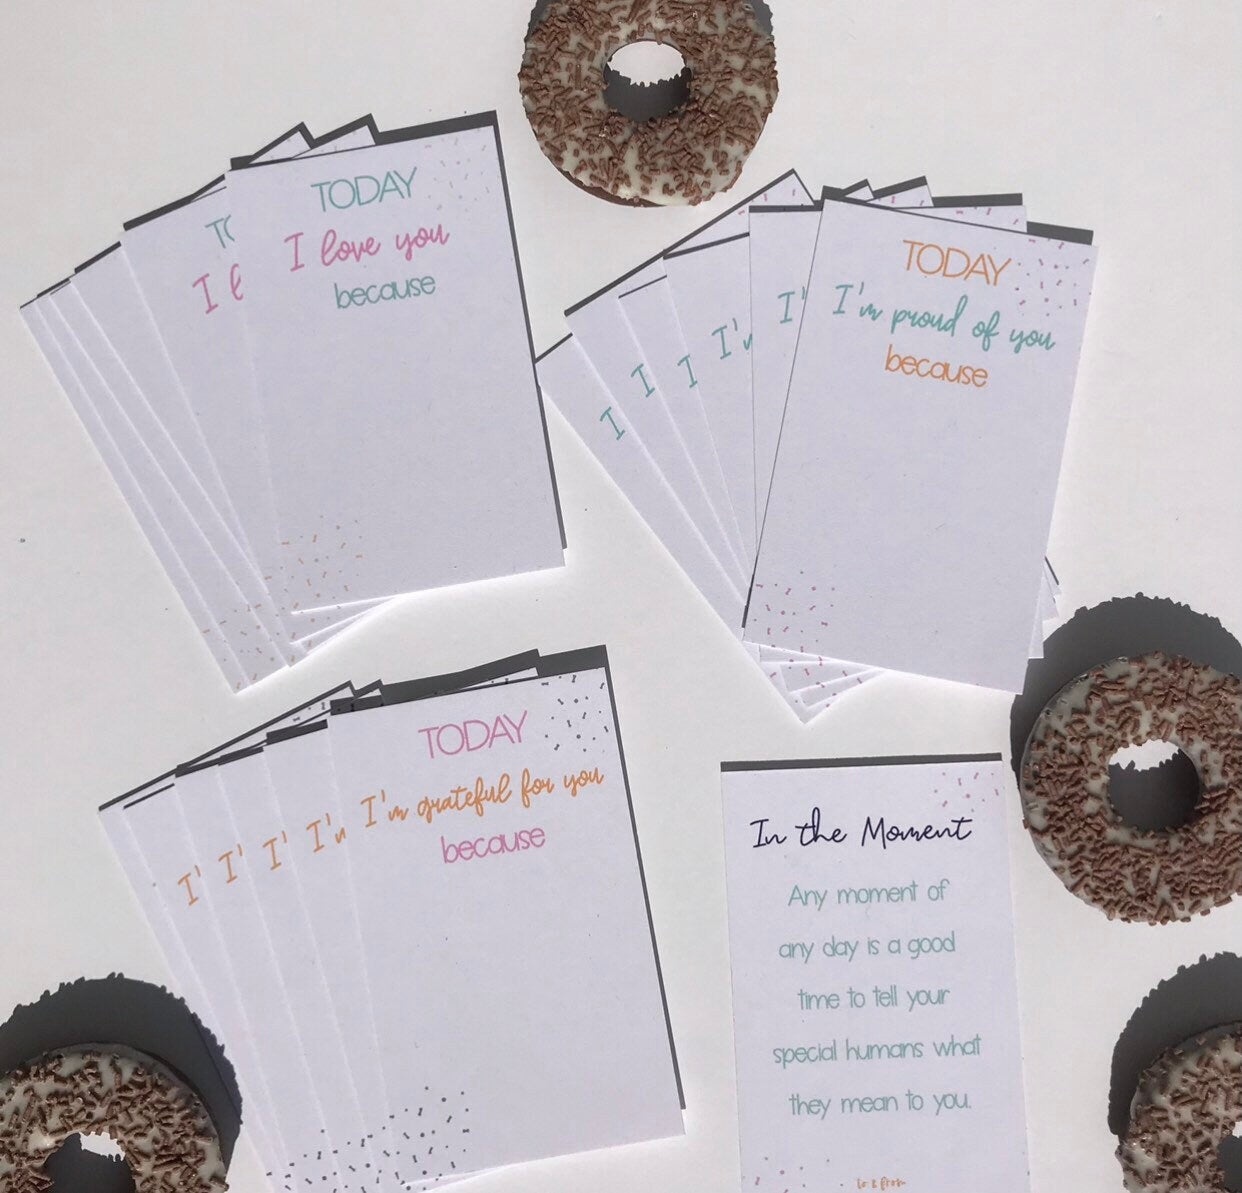 TODAY
I love you
because
I
TODAY
I'm proud of you
because
I'
I'm
I
I
I
TODAY
I'm grateful for you
because
I'm
I'
I'
I'
In the Moment
Any moment of
any day is a good
time to tell your
special humans what
they mean to you.
to & from